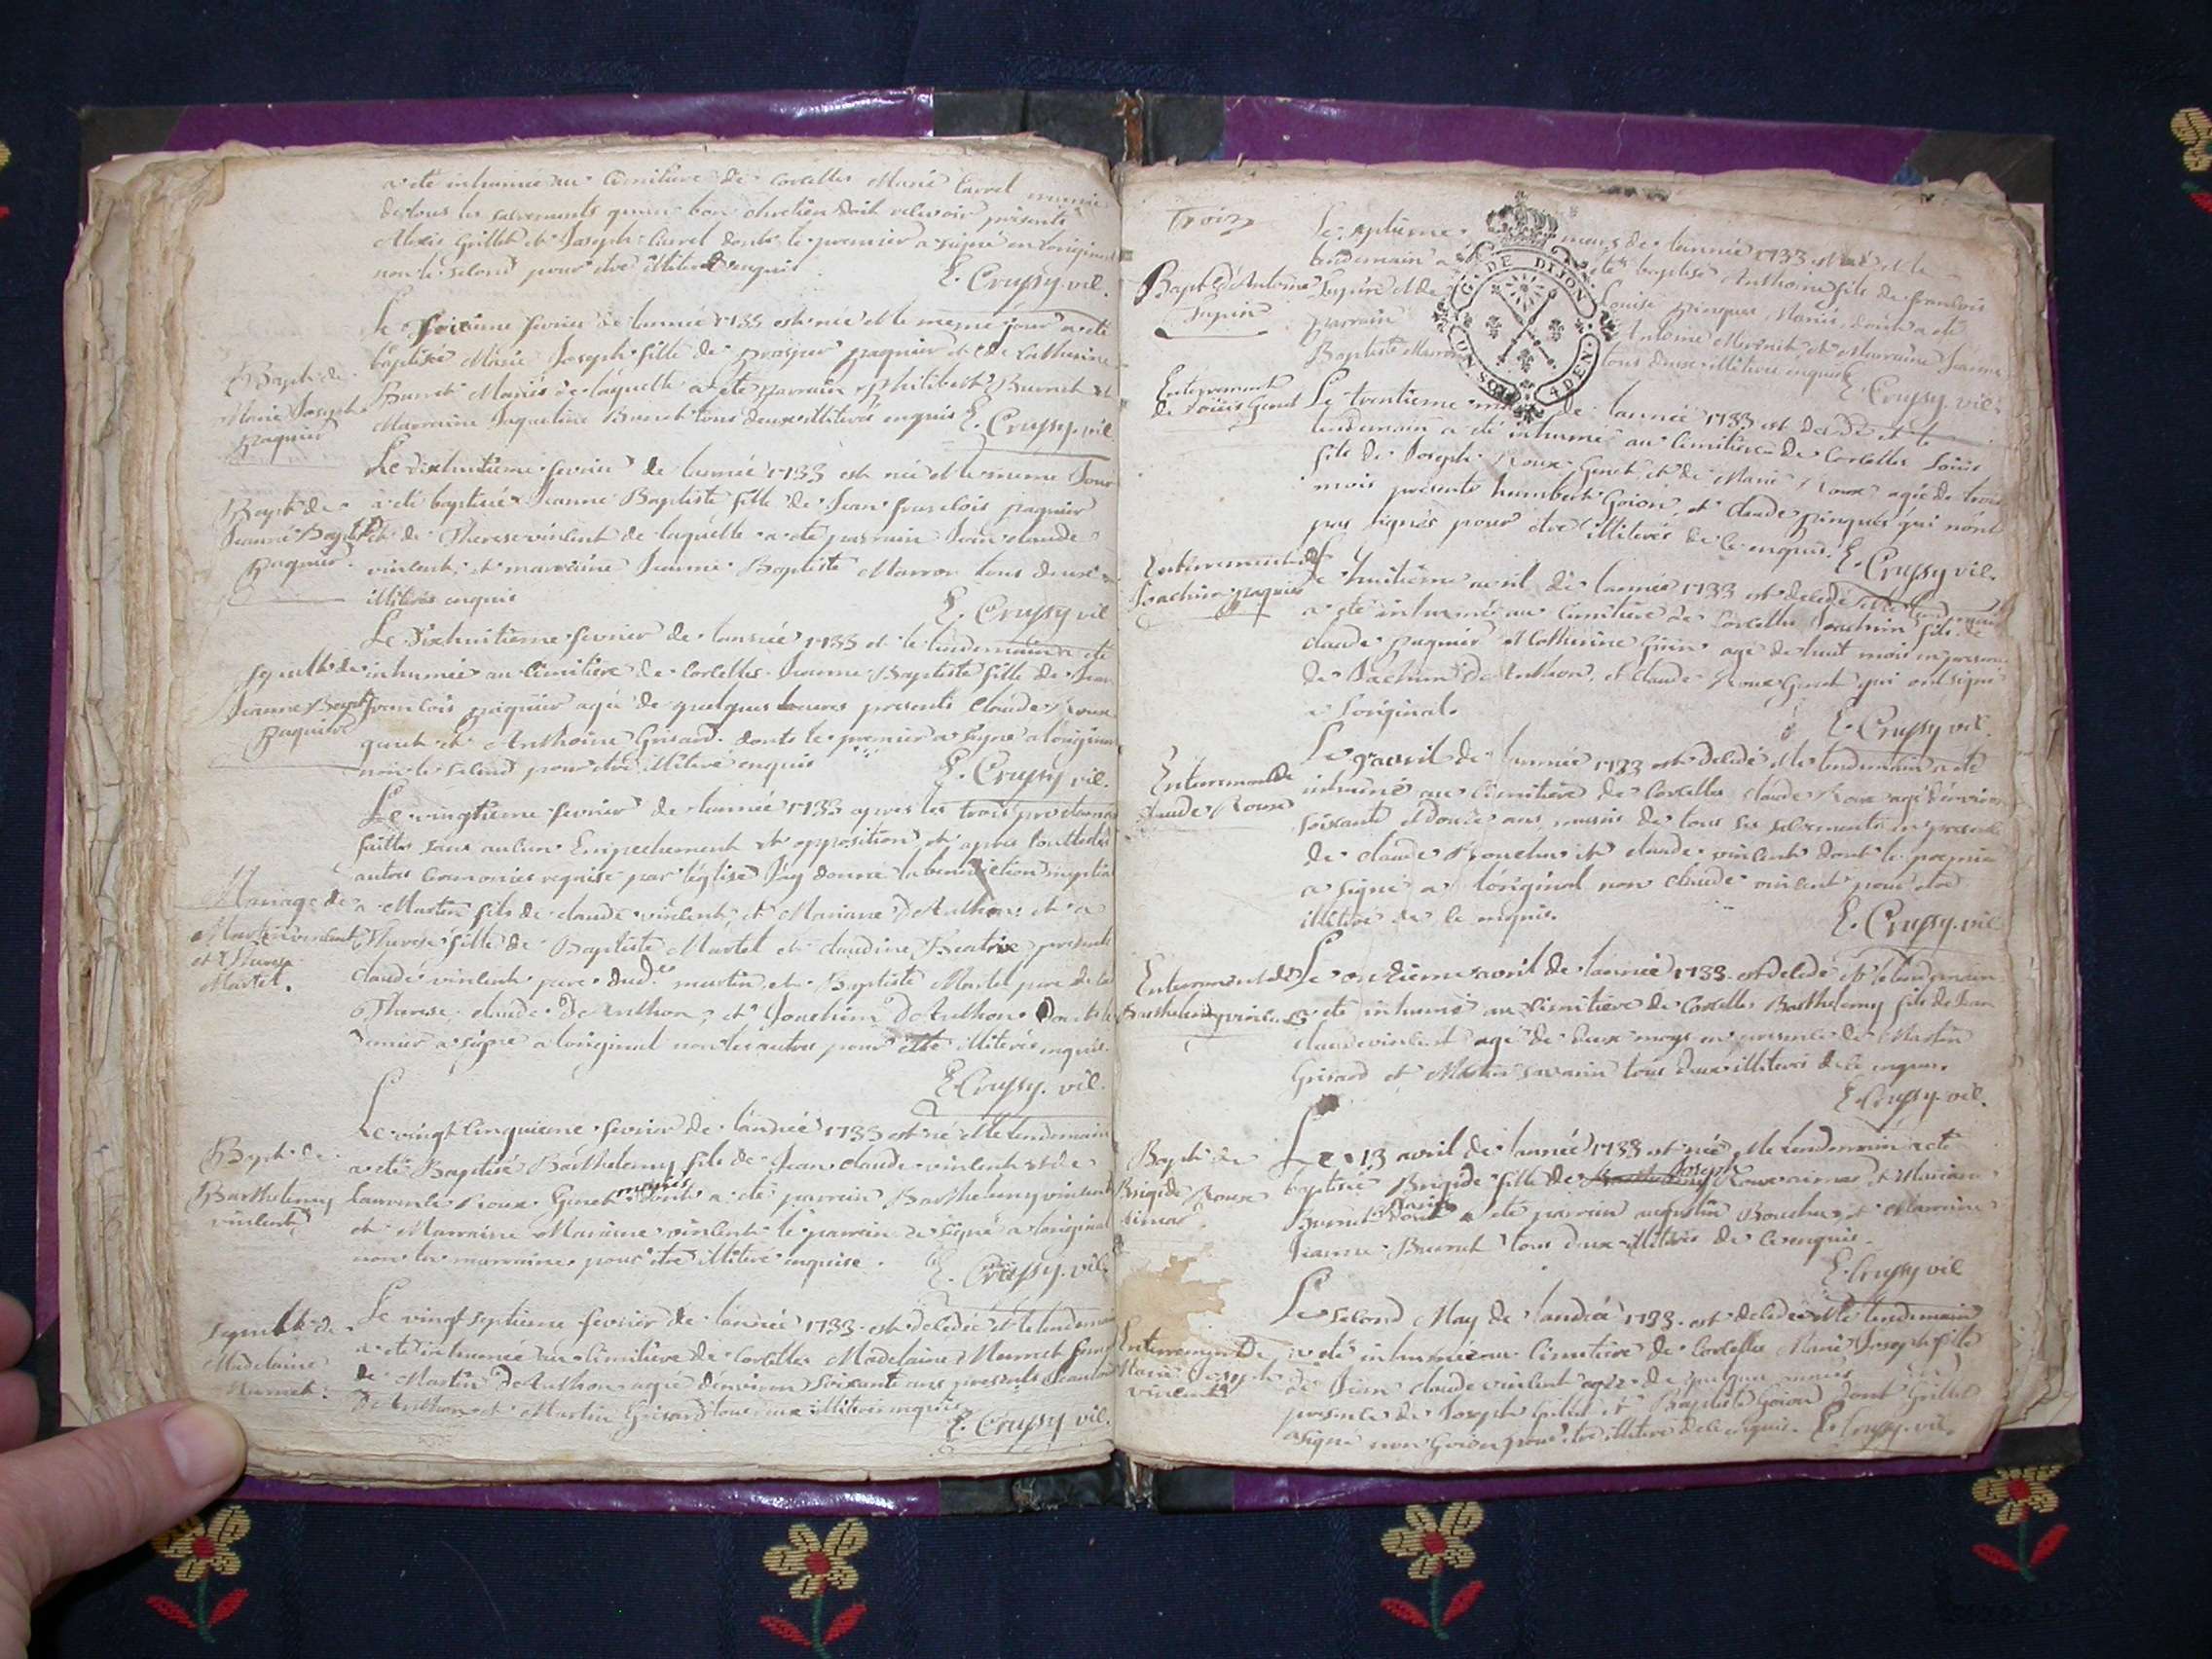 a été inhumée au cimitiere de Corcelles Marie Carrel munie
de tous les sacrements qu'un bon chretien doit recevoir presents
Alexis Grillet et Joseph Carrel dont le premier a signé a l'original
non le second pour etre illiteré enquis
E. Cruysy vic.
Bapt. de
Marie Joseph
paquier
Le seizieme fevrier de l'année 1733 est née et le meme jour a été
baptisée Marie Joseph fille de prosper paquier et de Catherine
Burnet Mariés de laquelle a été parrain philibert Burnet et
Marraine Jaqueline Burnet tous deux illiterés enquis E. Cruysy vic.
Bapt. de
Jeanne Baptiste
paquier
Le dixhuitieme fevrier de l'année 1733 est née et le meme Jour
a été baptisée Jeanne Baptiste fille de Jean francois paquier
et de Therese vincent de laquelle a été parrain Jean claude
vincent, et marraine Jeanne Baptiste Marron tous deux
illiterés enquis
E. Cruysy vic
sepult. de
Jeanne Bapt.
paquier
Le dixhuitieme fevrier de l'année 1733 et le lendemain a été
inhumée au cimitiere de Corcelles Jeanne Baptiste fille de Jean
francois paquier agée de quelques heures presents claude Roux
guent et Anthoine Grisard dont le premier a signé a l'original
non le second pour etre illiteré enquis
E. Cruysy vic.
Mariage de
Martin vincent
et Therese
Martel.
Le vingtieme fevrier de l'année 1733 apres les trois proclamat
faittes sans aucun Empechement et opposition, et apres touttes les
autres ceremonies requise par l'église J'ay donné la benediction nuptia
a Martin fils de claude vincent, et Mariane D'Authon, et a
Therese fille de Baptiste Martel et claudine Beatrix presents
claude vincent pere dud. martin, et Baptiste Martel pere de la
Therese, claude D'Authon, et Joachim D'Authon dont le
dernier a signé a l'original non les autres pour etre illiterés enquis.
E. Cruysy. vic.
Bapt. de
Barthelemy
vincent
Le vingt cinquieme fevrier de l'année 1733 est né et le lendemain
a été Baptisé Barthelemy fils de Jean claude vincent et de
Laurence Roux Genet mariés dont a été parrain Barthelemy vincent
et Marraine Mariane vincent le parrain a signé a l'original
non la marraine pour etre illiteré enquise.
E. Cruysy. vic.
sepult. de
Madelaine
Burnet.
Le vingt septieme fevrier de l'année 1733 est decedée et le lendemain
a été inhumée au cimitiere de Corcelles Madelaine Burnet femme
de Martin D'Authon agée d'environ soixante ans presents
D'Authon et Martin Grisard tous deux illiterés enquis
E. Cruysy vic.
Trois
Bapt. d'Antoine
Le septieme mars de l'année 1733 est né et le
lendemain a été baptisé Anthoine fils de francois
et de Louise pinguet Mariés, dont a été
parrain Antoine et Marraine Jeanne
Baptiste Marron tous deux illiterés enquis
E. Cruysy. vic.
Enterrement
de Loüis Genet
Le trentieme de l'année 1733 est decedé et le
lendemain a été inhumé au cimitiere de Corcelles Loüis
fils de Joseph Roux Genet, et de Marie Roux agé de trois
mois presents humbert Goion, et claude pinguet qui n'ont
pas signés pour etre illiterés de ce enquis. E. Cruysy vic.
Enterrement de
Joachim paquier
Le huitieme avril de l'année 1733 est decedé et le lendemain
a été inhumé au cimitiere de Corcelles Joachim fils de
claude paquier et Catherine agé de huit mois en presence
de Joachim D'Authon, et claude Roux Genet qui ont signé
a l'original.
E. Cruysy vic.
Enterrement de
claude Roux
Le 9 avril de l'année 1733 est decedé et le lendemain a été
inhumé au cimitiere de Corcelles claude Roux agé d'environ
soixante et douze ans, munis de tous ses sacrements en presence
de claude Boucher et claude vincent dont le premier
a signé a l'original non claude vincent pour etre
illiteré de ce enquis.
E. Cruysy. vic
Enterrement de
Barthelemy vincent
Le onzieme avril de l'année 1733 est decedé et le lendemain
a été inhumé au cimitiere de Corcelles Barthelemy fils de Jean
claude vincent agé de deux moys en presence de Martin
Grisard et Martin savarin tous deux illiterés de ce enquis.
E. Cruysy. vic.
Bapt. de
Brigide Roux
Le 13 avril de l'année 1733 est née, et le lendemain a été
baptisée Brigide fille de Joseph Roux et Mariane
Burnet Mariés dont a été parrain augustin Boucher, et Marraine
Jeanne Burnet tous deux illiterés de ce enquis.
E. Cruysy vic
Enterrement de
Marie Joseph
vincent
Le second May de l'année 1733 est decedée et le lendemain
a été inhumée au cimitiere de Corcelles Marie Joseph fille
de Jean claude vincent agée de quelque mois en
presence de Joseph Grillet et Baptiste Goion dont Grillet
a signé non Goion pour etre illiteré de ce enquis. E. Cruysy. vic.
G. DE DIJON